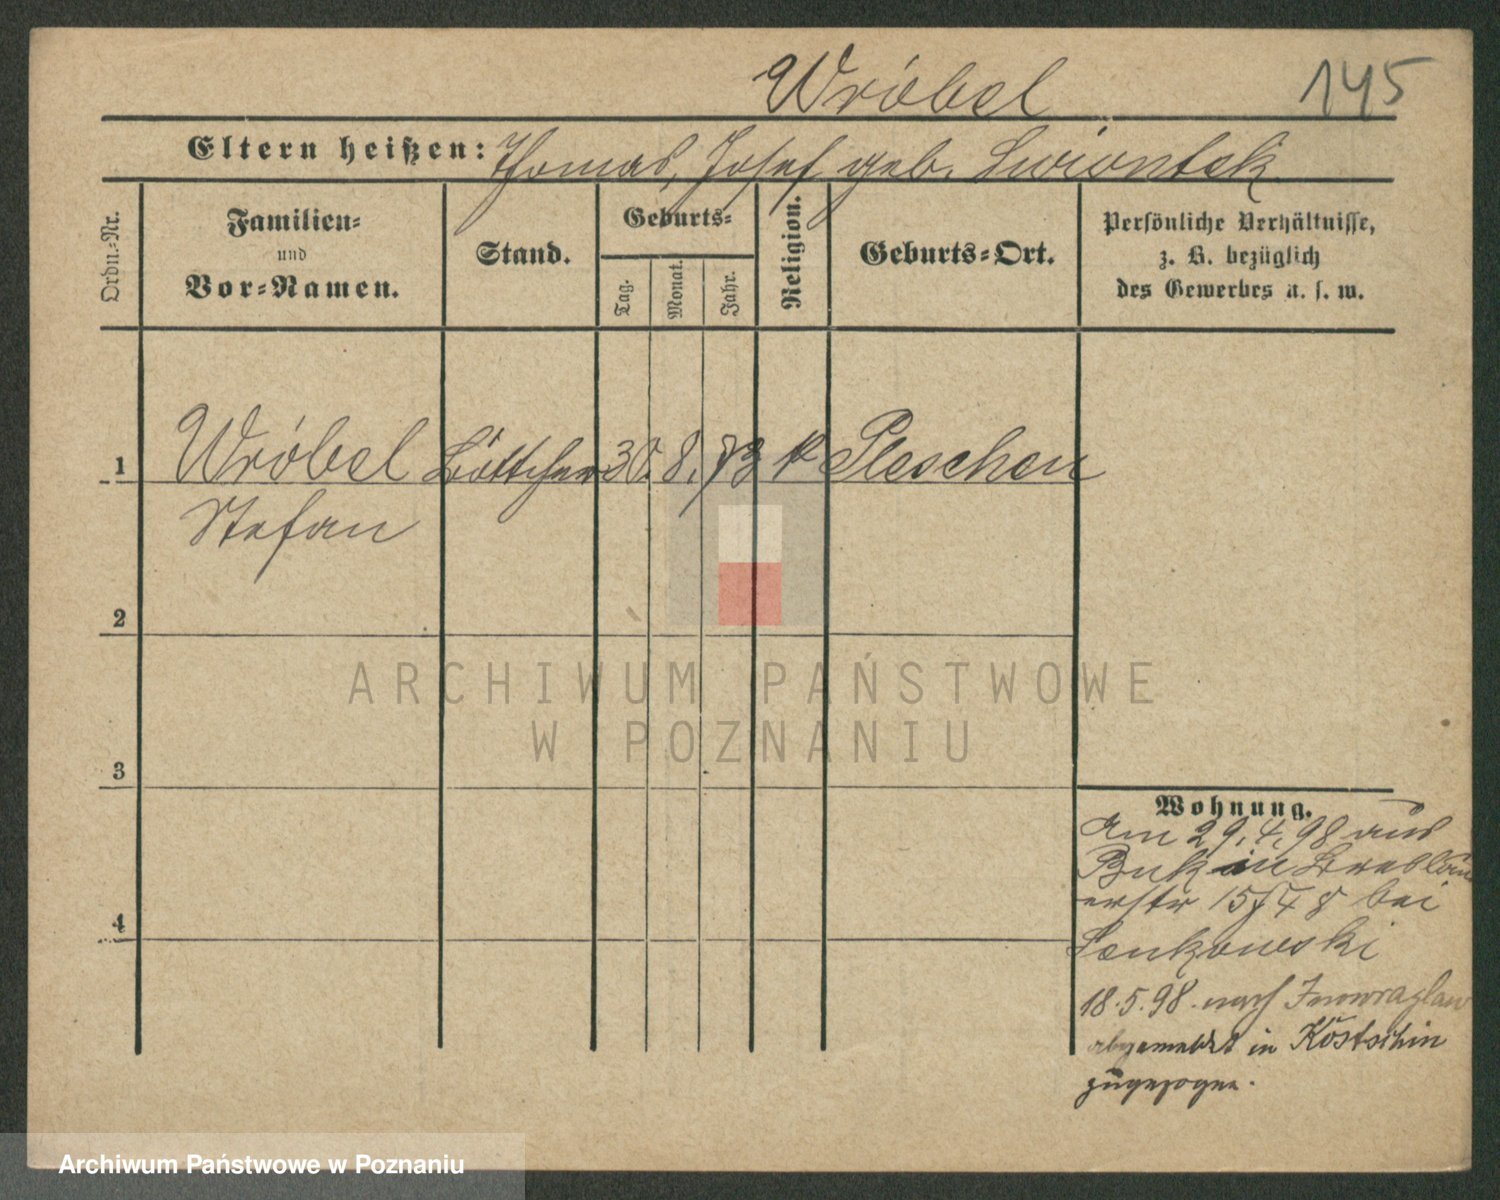 Wróbel 145
Eltern heißen: Thomas, Josef geb. Swiontek
Ordn.-Nr.
Familien-
und
Vor-Namen.
Stand.
Geburts-
Tag.
Monat.
Jahr.
Religion.
Geburts-Ort.
Persönliche Verhältnisse,
z. B. bezüglich
des Gewerbes u. s. w.
1 Wróbel Böttcher 30. 8. 73 k Pleschen
Stefan
2
3
4
ARCHIWUM PAŃSTWOWE
W POZNANIU
Wohnung.
Am 29.4.98 aus
Buk in
15 bei
Lenkowski
18.5.98. nach Inowrazlaw
abgemeldet in Kostschin
zugezogen.
Archiwum Państwowe w Poznaniu